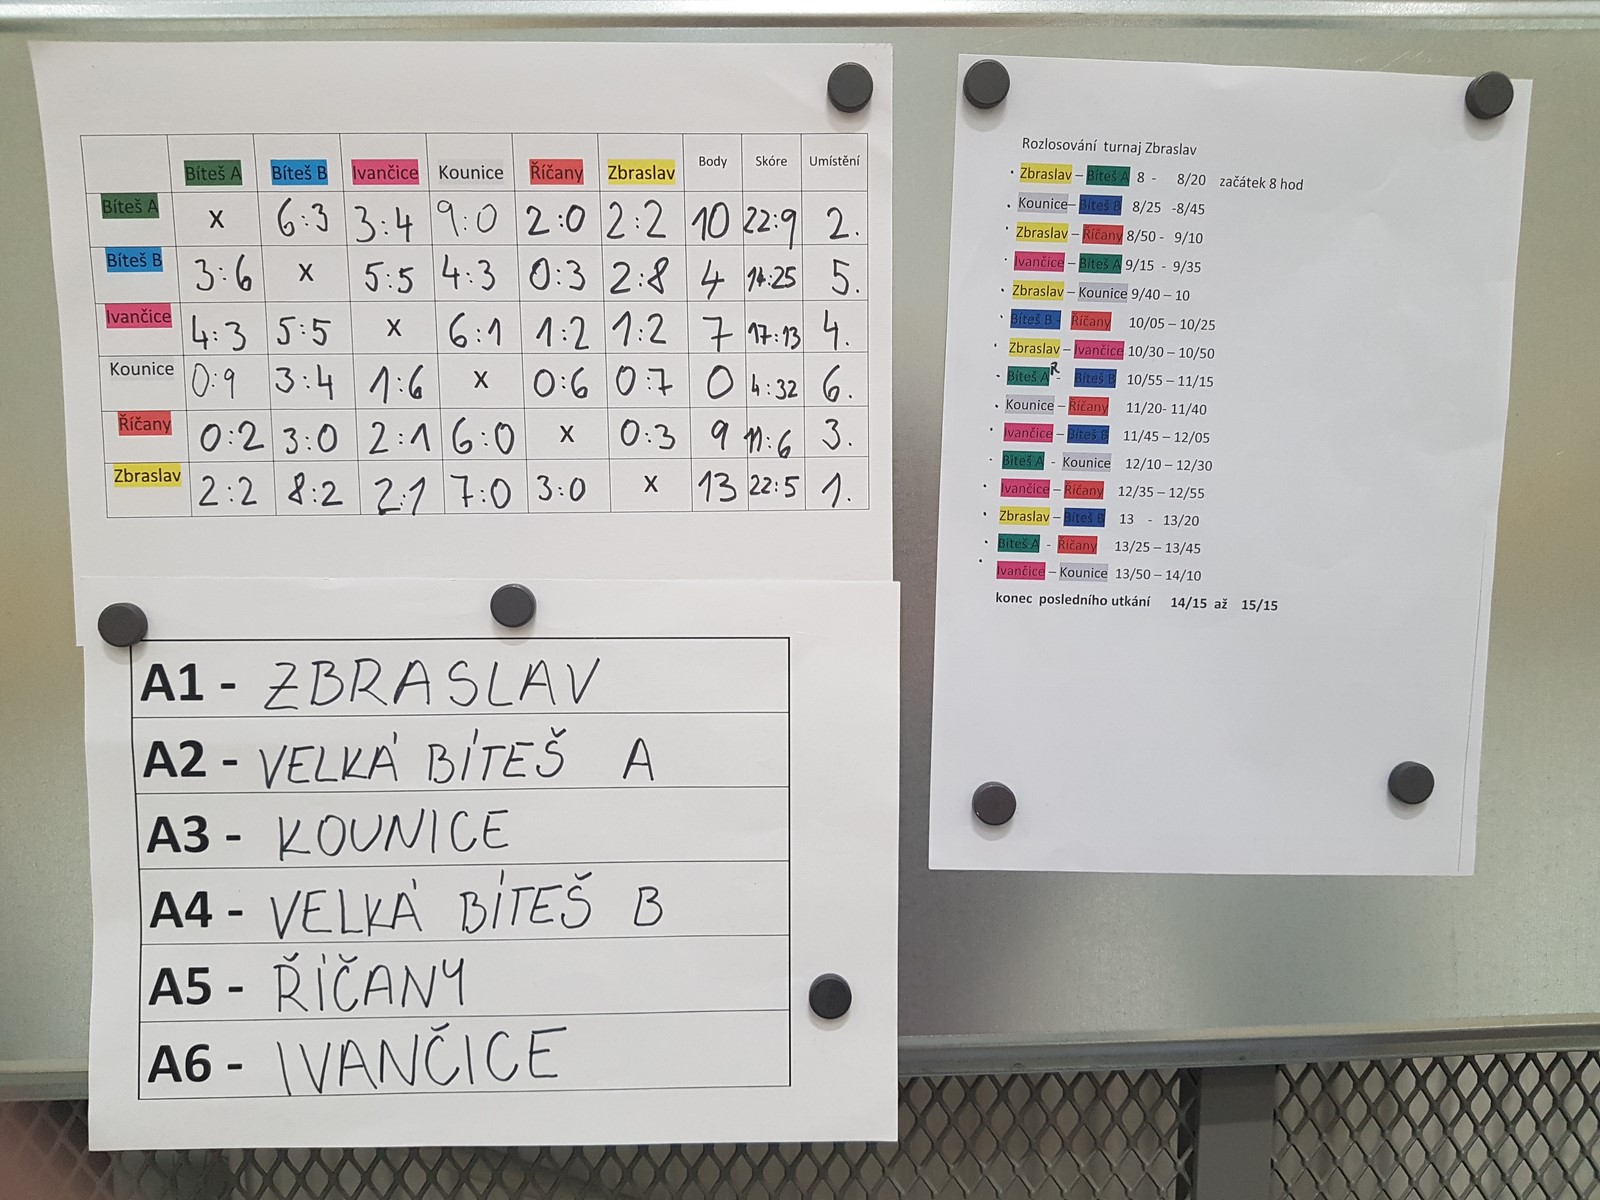 Bíteš A Bíteš B Ivančice Kounice Říčany Zbraslav Body Skóre Umístění
Bíteš A x 6:3 3:4 9:0 2:0 2:2 10 22:9 2.
Bíteš B 3:6 x 5:5 4:3 0:3 2:8 4 14:25 5.
Ivančice 4:3 5:5 x 6:1 1:2 1:2 7 17:13 4.
Kounice 0:9 3:4 1:6 x 0:6 0:7 0 4:32 6.
Říčany 0:2 3:0 2:1 6:0 x 0:3 9 11:6 3.
Zbraslav 2:2 8:2 2:1 7:0 3:0 x 13 22:5 1.
A1 - ZBRASLAV
A2 - VELKÁ BÍTEŠ A
A3 - KOUNICE
A4 - VELKÁ BÍTEŠ B
A5 - ŘÍČANY
A6 - IVANČICE
Rozlosování turnaj Zbraslav
Zbraslav – Bíteš A 8 - 8/20 začátek 8 hod
Kounice – Bíteš B 8/25 -8/45
Zbraslav – Říčany 8/50 - 9/10
Ivančice – Bíteš A 9/15 - 9/35
Zbraslav – Kounice 9/40 – 10
Bíteš B - Říčany 10/05 – 10/25
Zbraslav – Ivančice 10/30 – 10/50
Bíteš A - R Bíteš B 10/55 – 11/15
Kounice – Říčany 11/20- 11/40
Ivančice – Bíteš B 11/45 – 12/05
Bíteš A - Kounice 12/10 – 12/30
Ivančice – Říčany 12/35 – 12/55
Zbraslav – Bíteš B 13 - 13/20
Bíteš A - Říčany 13/25 – 13/45
Ivančice – Kounice 13/50 – 14/10
konec posledního utkání 14/15 až 15/15